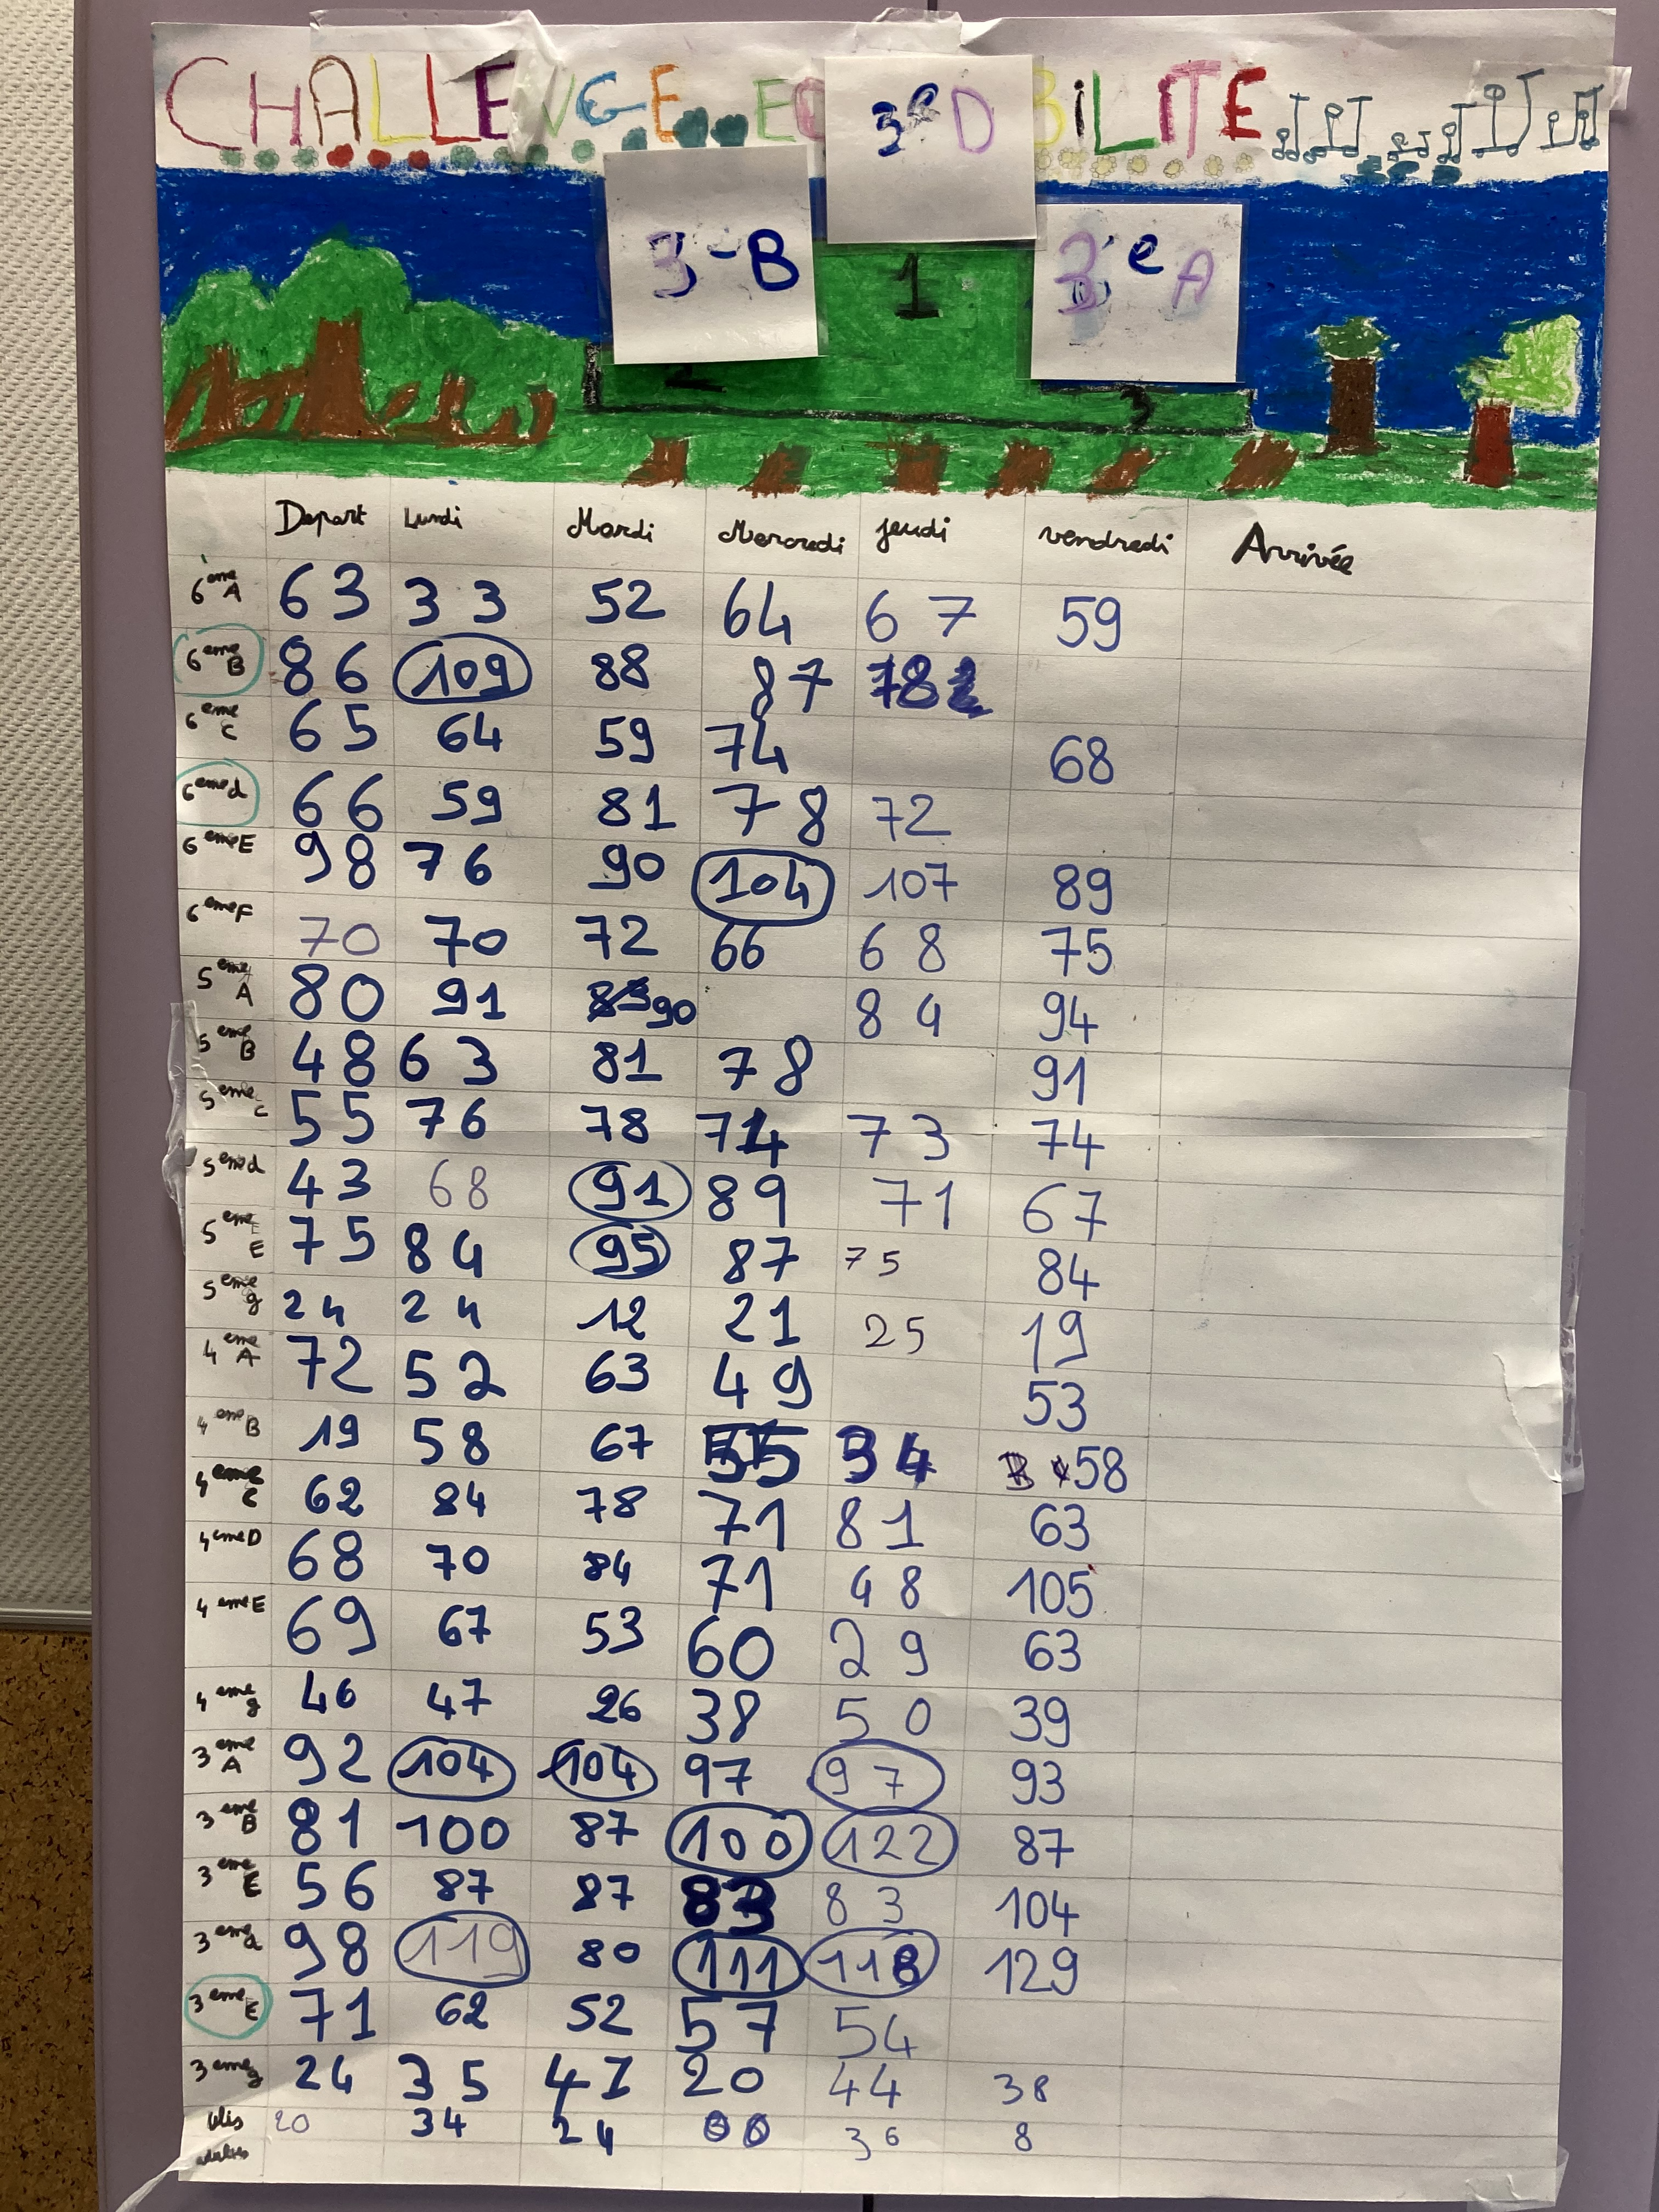 CHALLENGE ECO BILITE
3e D
3e B
3e A
1
2
3
Depart Lundi Mardi Mercredi jeudi vendredi Arrivée
6eme A 63 33 52 64 67 59
6eme B 86 109 88 87 78
6eme C 65 64 59 74 68
6eme d 66 59 81 78 72
6eme E 98 76 90 104 107 89
6eme F 70 70 72 66 68 75
5eme A 80 91 90 84 94
5eme B 48 63 81 78 91
5eme C 55 76 78 74 73 74
5eme d 43 68 91 89 71 67
5eme E 75 84 95 87 75 84
5eme g 24 24 12 21 25 19
4eme A 72 52 63 49 53
4eme B 19 58 67 55 34 58
4eme C 62 84 78 71 81 63
4eme D 68 70 84 71 48 105
4eme E 69 67 53 60 29 63
4eme g 46 47 26 38 50 39
3eme A 92 104 104 97 97 93
3eme B 81 100 87 100 122 87
3eme 56 87 87 83 83 104
3eme d 98 119 80 111 118 129
3eme E 71 62 52 57 54
3eme g 24 35 41 20 44 38
Ulis 20 34 24 00 36 8
adultes